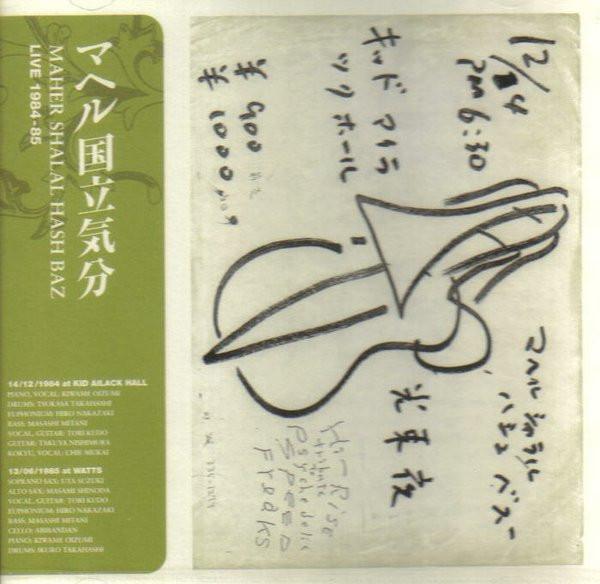 マヘル国立気分
MAHER SHALAL HASH BAZ
LIVE 1984-85
14/12/1984 at KID AILACK HALL
PIANO, VOCAL: KIWAME OIZUMI
DRUMS: TSUKASA TAKAHASHI
EUPHONIUM: HIRO NAKAZAKI
BASS: MASASHI MITANI
VOCAL, GUITAR: TORI KUDO
GUITAR: TAKUYA NISHIMURA
KOKYU, VOCAL: CHIE MUKAI
13/06/1985 at WATTS
SOPRANO SAX: UTA SUZUKI
ALTO SAX: MASAMI SHINODA
VOCAL, GUITAR: TORI KUDO
EUPHONIUM: HIRO NAKAZAKI
BASS: MASASHI MITANI
CELLO: ABBANDAN
PIANO: KIWAME OIZUMI
DRUMS: IKURO TAKAHASHI
12/14
PM 6:30
キッド アイラ
ック ホール
¥ 900
¥ 1000
マヘル シャラル
ハシュ バズ
光束夜
Hi-Rise
Psychedelic
SPEED
Freaks